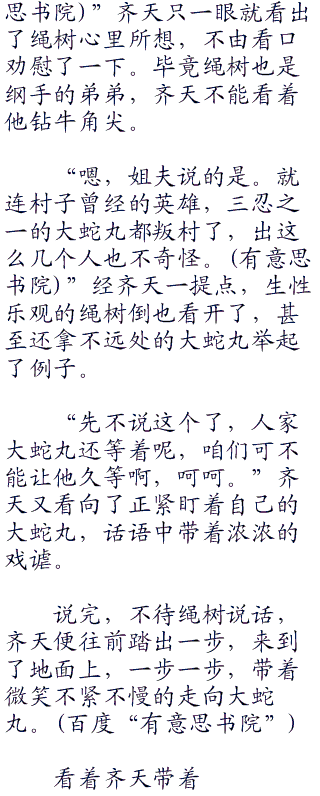 思书院)”齐天只一眼就看出
了绳树心里所想，不由看口
劝慰了一下。毕竟绳树也是
纲手的弟弟，齐天不能看着
他钻牛角尖。
“嗯，姐夫说的是。就
连村子曾经的英雄，三忍之
一的大蛇丸都叛村了，出这
么几个人也不奇怪。(有意思
书院)”经齐天一提点，生性
乐观的绳树倒也看开了，甚
至还拿不远处的大蛇丸举起
了例子。
“先不说这个了，人家
大蛇丸还等着呢，咱们可不
能让他久等啊，呵呵。”齐
天又看向了正紧盯着自己的
大蛇丸，话语中带着浓浓的
戏谑。
说完，不待绳树说话，
齐天便往前踏出一步，来到
了地面上，一步一步，带着
微笑不紧不慢的走向大蛇
丸。(百度“有意思书院”)
看着齐天带着